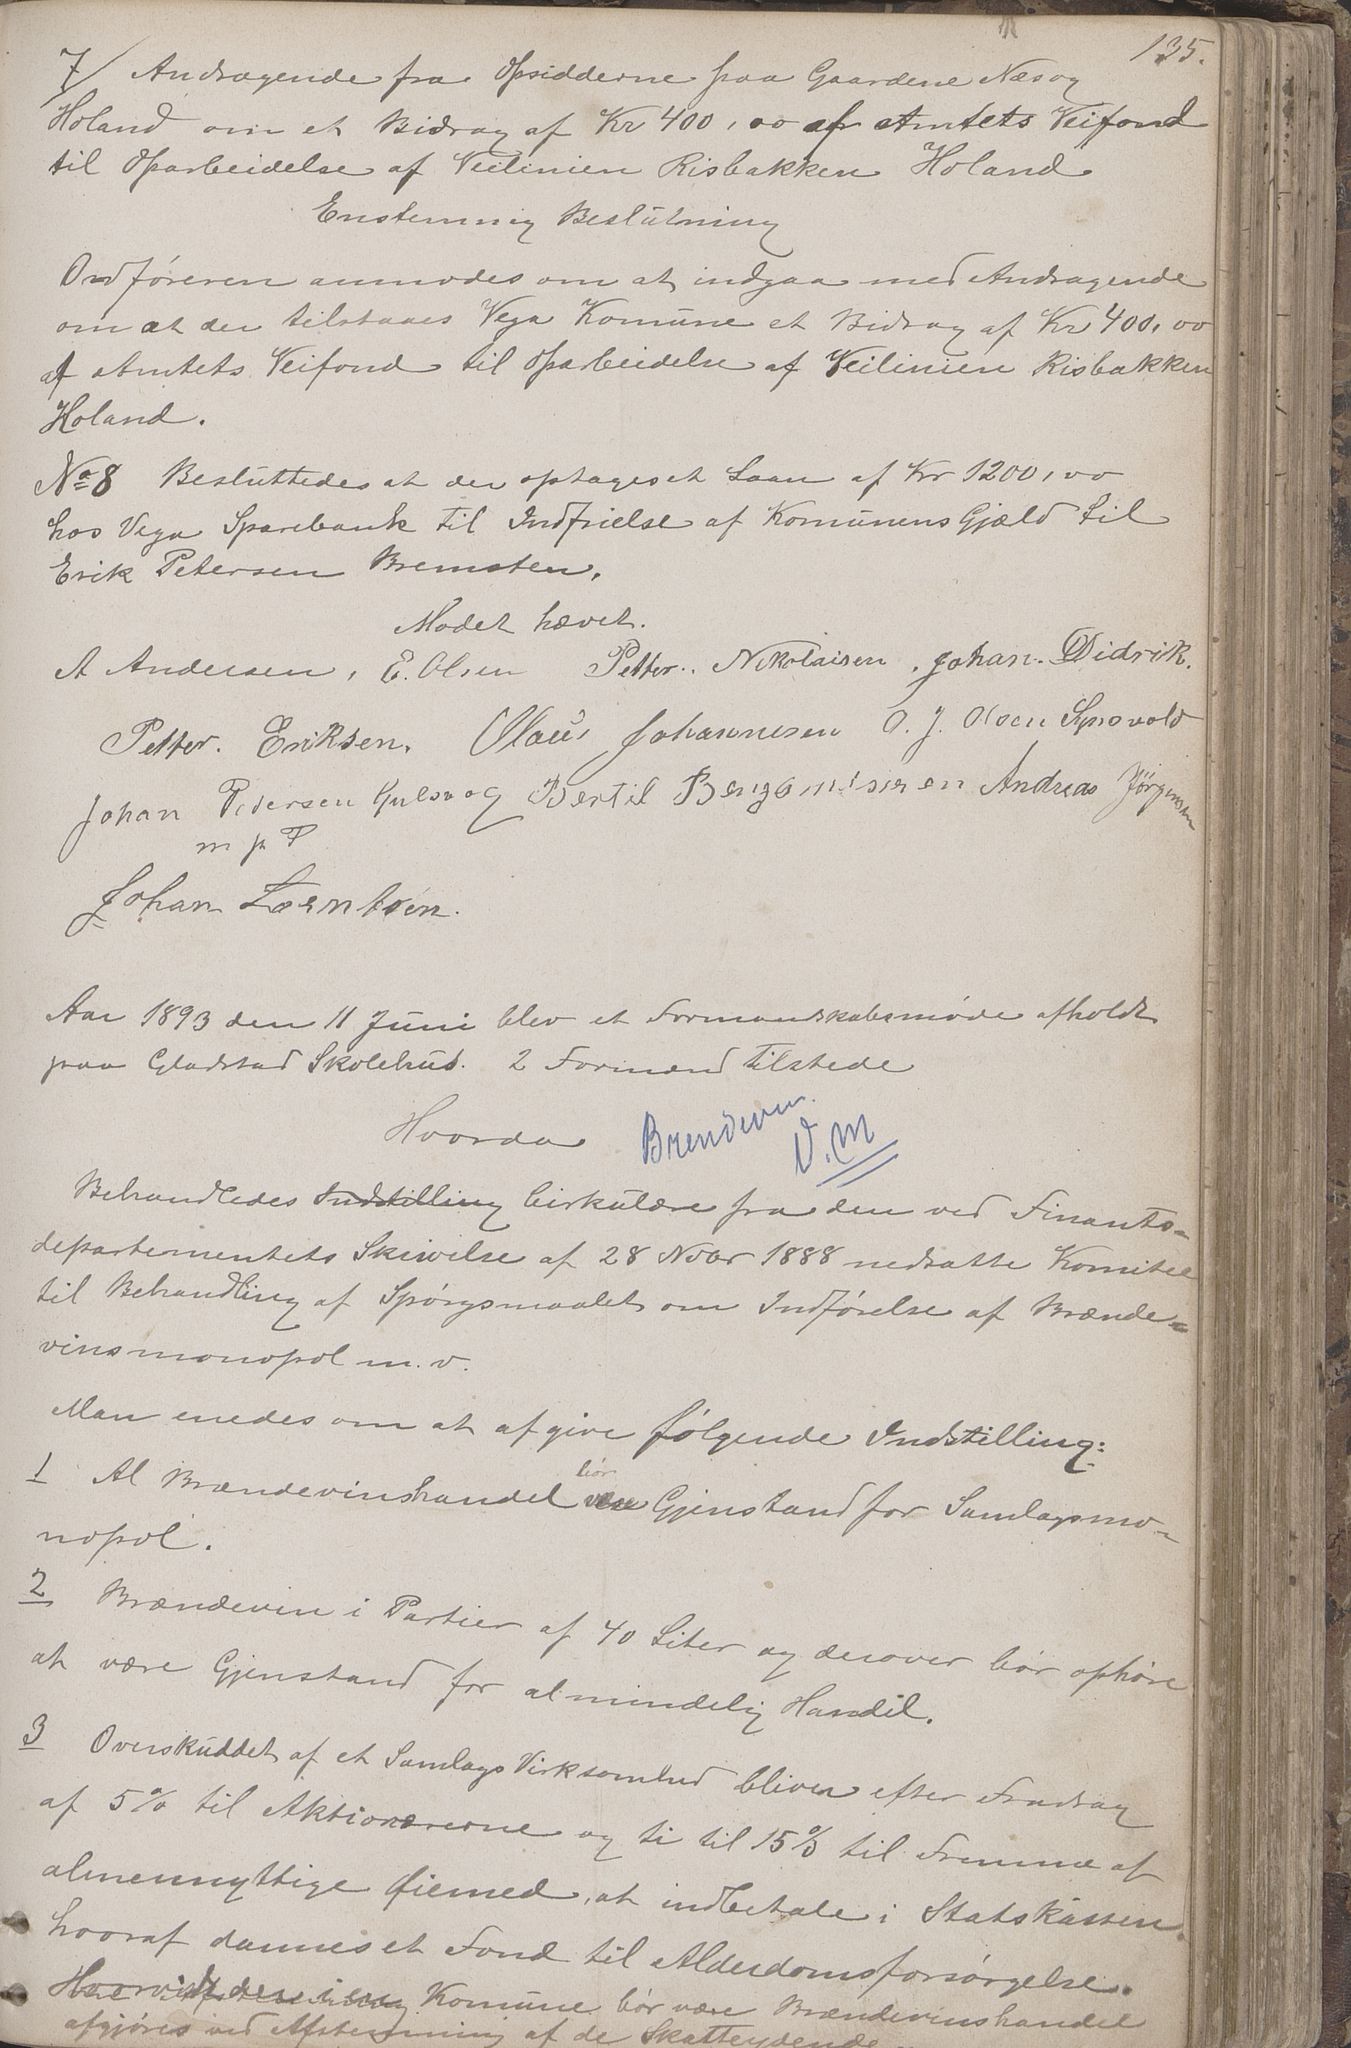 135.
7/ Andragende fra Opsidderne paa Gaardene Næs og
Holand om et Bidrag af Kr 400,00 af Amtets Veifond
til Oparbeidelse af Veilinien Risbakken Holand
Enstemmig Beslutning
Ordføreren anmodes om at indgaa med Andragende
om at der tilstaaes Vega Komune et Bidrag af Kr 400,00
af Amtets Veifond til Oparbeidelse af Veilinien Risbakken
Holand.
No 8 Besluttedes at der optages et Laan af Kr 1200,00
hos Vega Sparebank til Indfrielse af Komunens Gjæld til
Erik Petersen Bremsten.
Mødet hævet.
A Andersen, E. Olsen Petter. Nikolaisen, Johan. Didrik.
Petter. Eriksen. Olaus Johannesen O. J. Olsen
Johan Pedersen Gulsvog Bertil Andreas Jörgensen
m p P
Johan Lorntsen.
Aar 1893 den 11 Juni blev et Formandskabsmøde afholdt
paa Gladstad Skolehus. 2 Formænd tilstede
Hvorda
Brendevin.
V.m
Behandledes Indstilling Cirkulære fra den ved Finants-
departementets Skrivelse af 28 Novbr 1888 nedsatte Komitee
til Behandling af Spørgsmaalet om Indførelse af Brænde-
vinsmonopol m.v.
Man enedes om at afgive følgende Indstilling:
1 Al Brændevinshandel bør være Gjenstand for Samlagsmo-
nopol.
2 Brændevin i Partier af 40 Liter og derover bør ophøre
at være Gjenstand for almindelig Handel.
3 Overskuddet af et Samlags Virksomhed bliver efter Fradrag
af 5% til Aktionærerne og ti til 15% til Fremme af
almennyttige Øiemed, at indbetale i Statskassen
hvoraf dannes et Fond til Alderdomsforsørgelse.
Hvorvidt der i en Komune bør være Brændevinshandel
afgjøres ved Afstemning af de Skatteydende